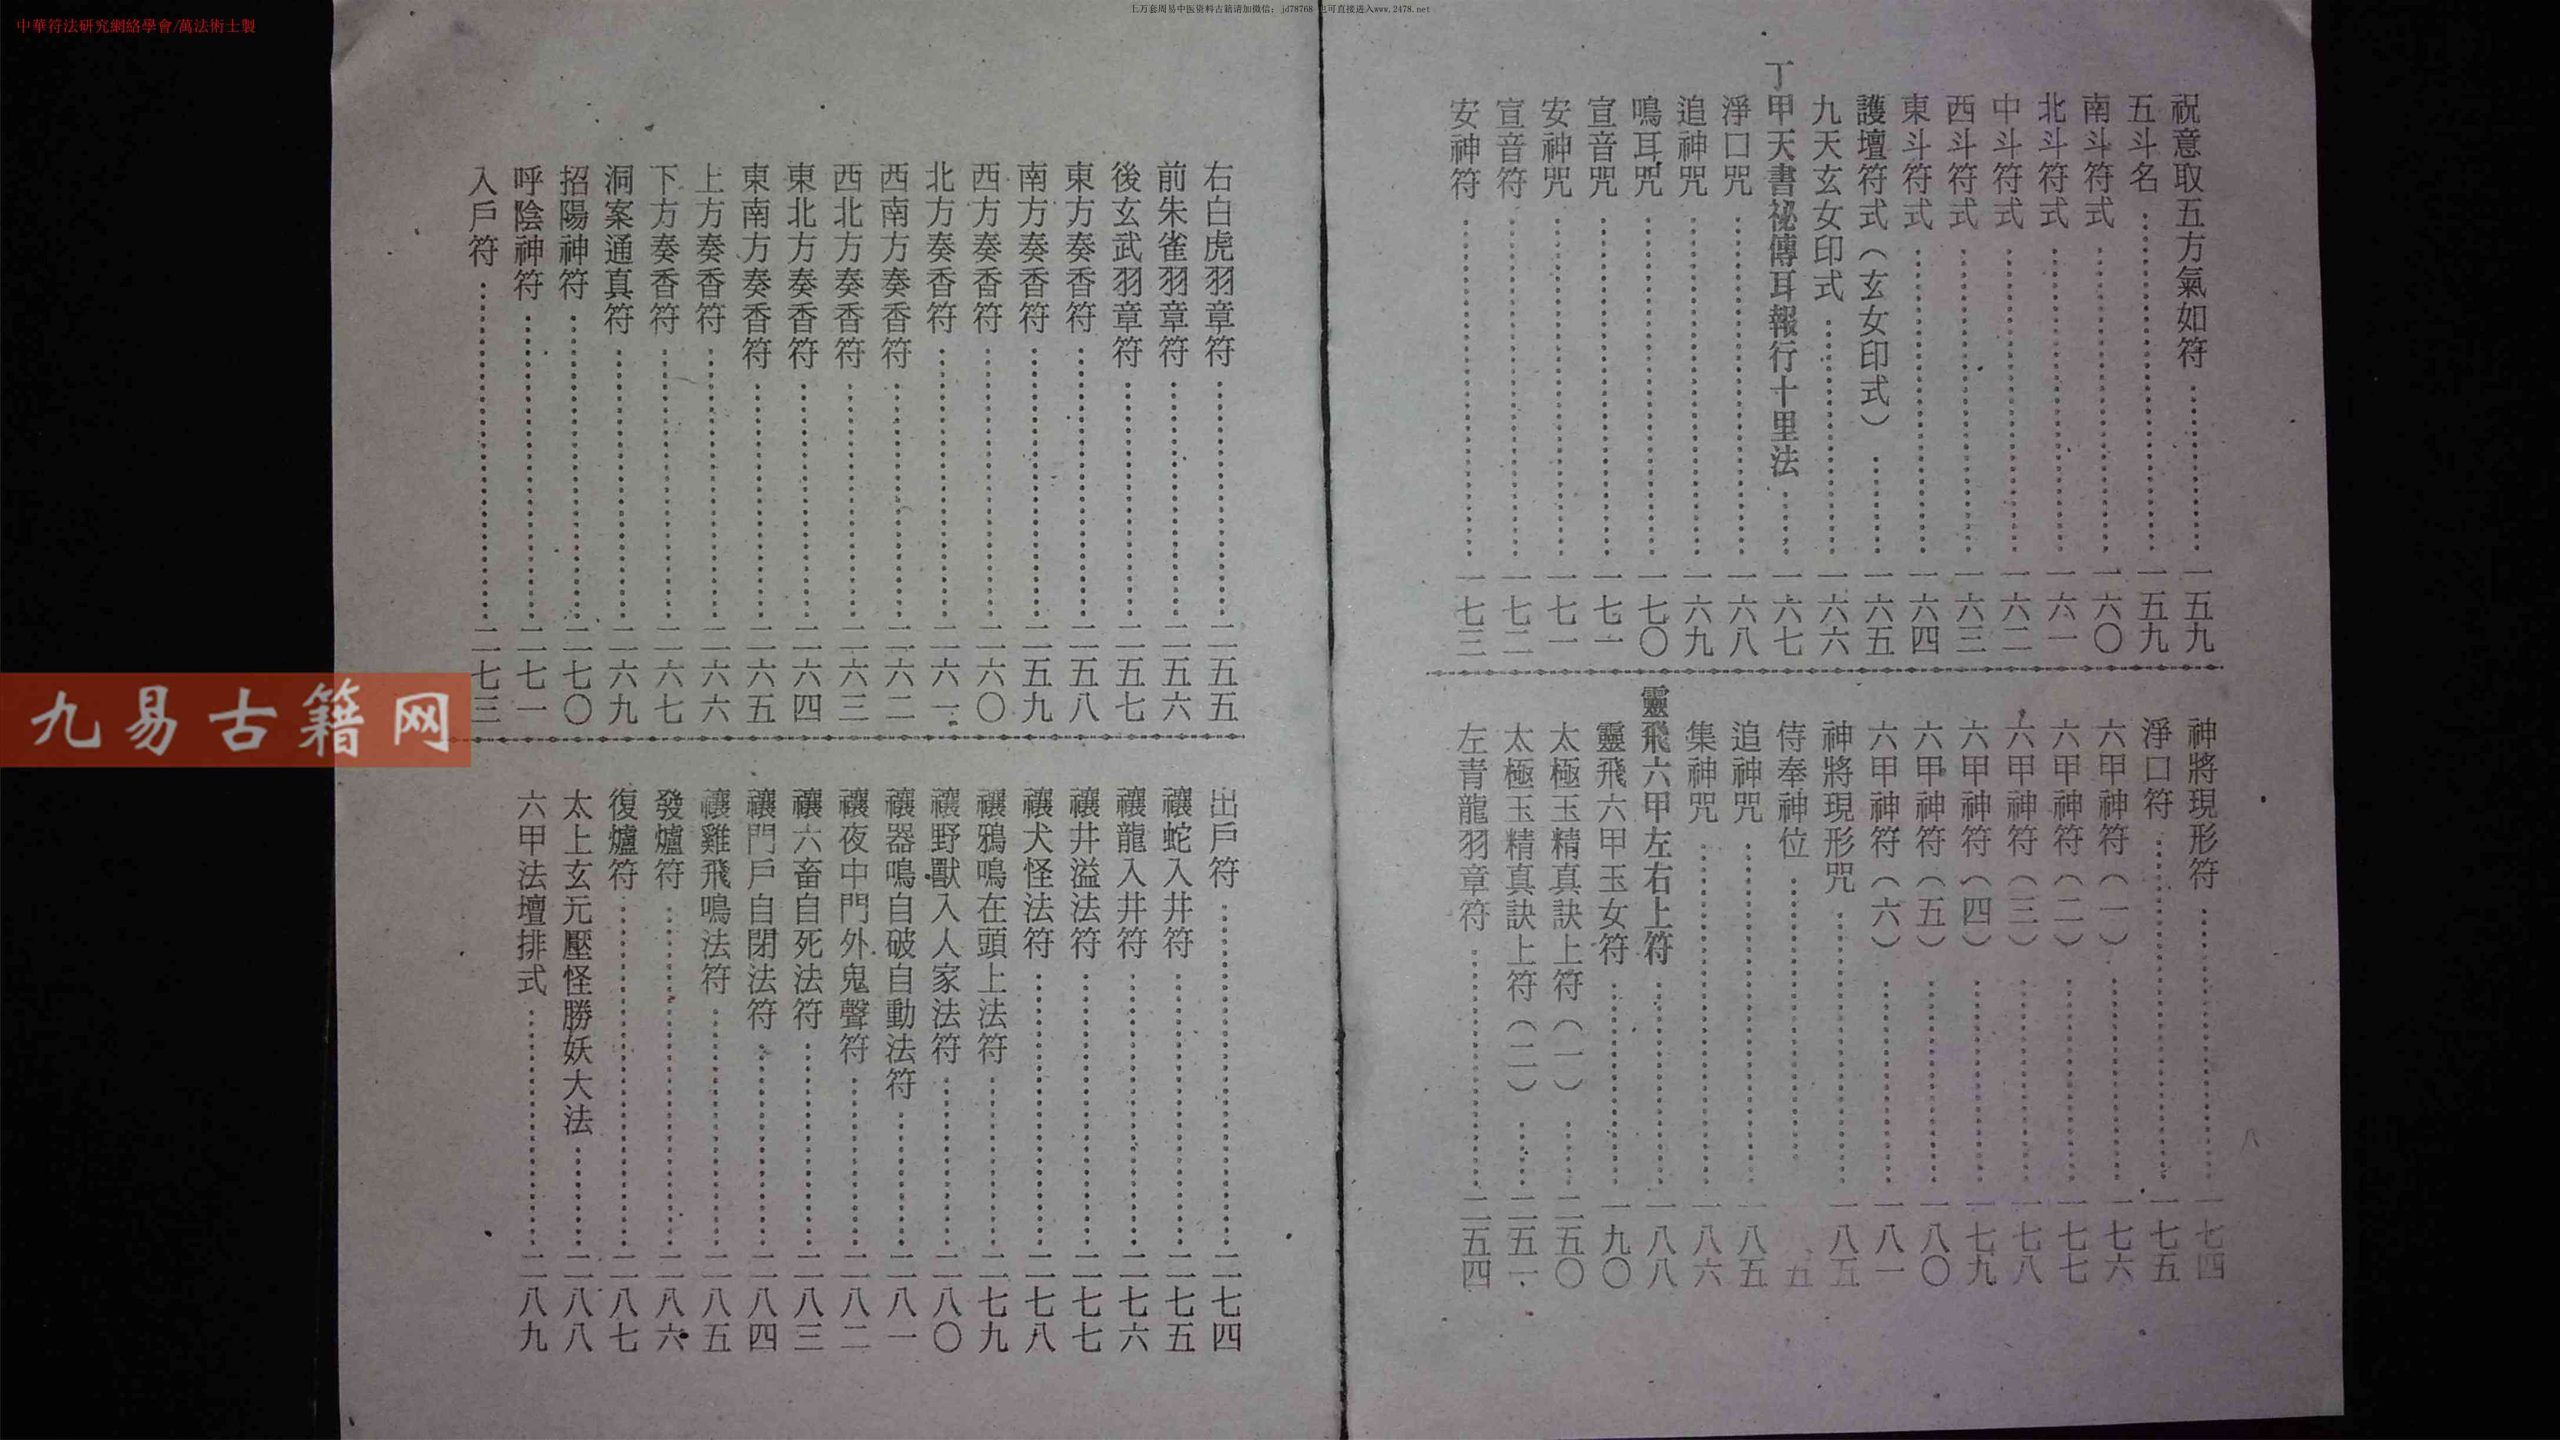 中華符法研究網絡學會/萬法術士製
上万套周易中医资料古籍请加微信：jd78768 也可直接进入www.2478.net
祝意取五方氣如符……一五九
五斗名……一五九
南斗符式……一六〇
北斗符式……一六一
中斗符式……一六二
西斗符式……一六三
東斗符式……一六四
護壇符式（玄女印式）……一六五
九天玄女印式……一六六
丁甲天書祕傳耳報行十里法……一六七
淨口咒……一六八
追神咒……一六九
鳴耳咒……一七〇
宣音咒……一七一
安神咒……一七一
宣音符……一七二
安神符……一七三
神將現形符……一七四
淨口符……一七五
六甲神符（一）……一七六
六甲神符（二）……一七七
六甲神符（三）……一七八
六甲神符（四）……一七九
六甲神符（五）……一八〇
六甲神符（六）……一八一
神將現形咒……一八五
侍奉神位……五
追神咒……一八五
集神咒……一八六
靈飛六甲左右上符……一八八
靈飛六甲玉女符……一九〇
太極玉精真訣上符（一）……二五〇
太極玉精真訣上符（二）……二五一
左青龍羽章符……二五四
八
右白虎羽章符……二五五
前朱雀羽章符……二五六
後玄武羽章符……二五七
東方奏香符……二五八
南方奏香符……二五九
西方奏香符……二六〇
北方奏香符……二六一
西南方奏香符……二六二
西北方奏香符……二六三
東北方奏香符……二六四
東南方奏香符……二六五
上方奏香符……二六六
下方奏香符……二六七
洞案通真符……二六九
招陽神符……二七〇
呼陰神符……二七一
入戶符……二七三
出戶符……二七四
禳蛇入井符……二七五
禳龍入井符……二七六
禳井溢法符……二七七
禳犬怪法符……二七八
禳鴉鳴在頭上法符……二七九
禳野獸入人家法符……二八〇
禳器鳴自破自動法符……二八一
禳夜中門外鬼聲符……二八二
禳六畜自死法符……二八三
禳門戶自閉法符……二八四
禳雞飛鳴法符……二八五
發爐符……二八六
復爐符……二八七
太上玄元壓怪勝妖大法……二八八
六甲法壇排式……二八九
九易古籍网